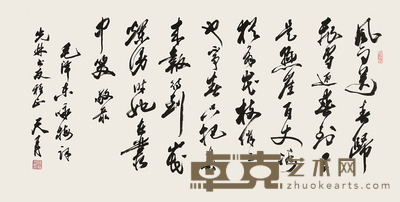 風雨送春歸
飛雪迎春到已
是懸崖百丈冰
猶有花枝俏俏
也不爭春只把春
來報待到山花
爛漫時她在叢
中笑
毛澤東咏梅詞
卓克艺术网
zhuokearts.com